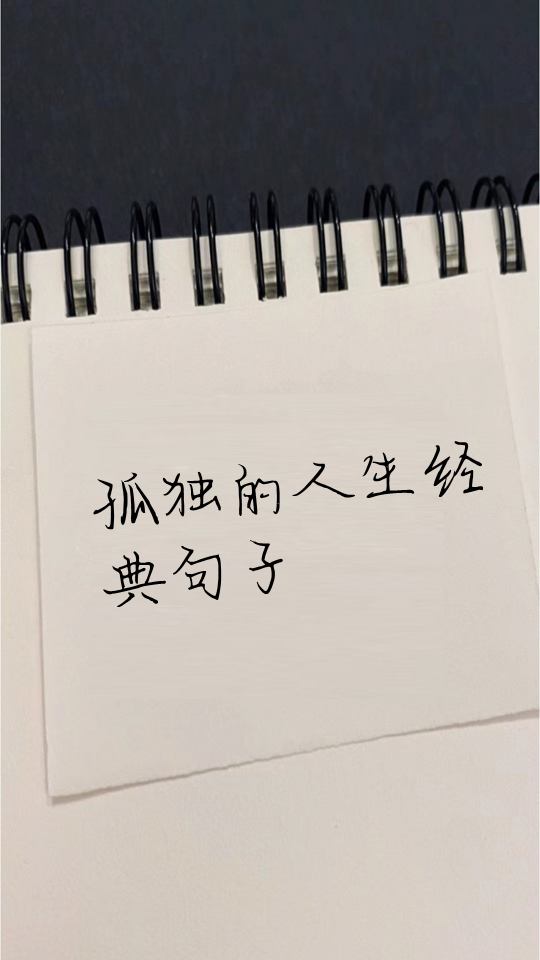 孤独的人生经
典句子